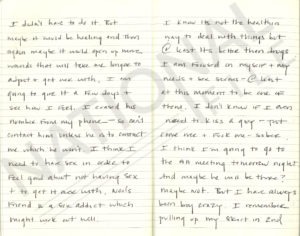 I didn't have to do it. But
maybe it would be healing and then
again maybe it would open up more
wounds that will take me longer to
adjust + get over with, I am
going to give it a few days +
see how I feel. I erased his
number from my phone - so can't
contact him unless he is to contact
me which he won't. I think I
need to have sex in order to
feel good about not having sex
+ to get it over with. Neils
friend is a sex addict which
might work out well.
I know its not the healthiest
way to deal with things but
@ least its better than drugs
I am focused on myself + my
needs + sex seems - @ least
at this moment to be one of
them. I don't know if I even
need to kiss a guy - just
come over + fuck me - sober
I think I'm going to go to
the AA meeting tomorrow night
and maybe he will be there?
maybe not. But I have always
been boy crazy. I remember
pulling up my skirt in 2nd